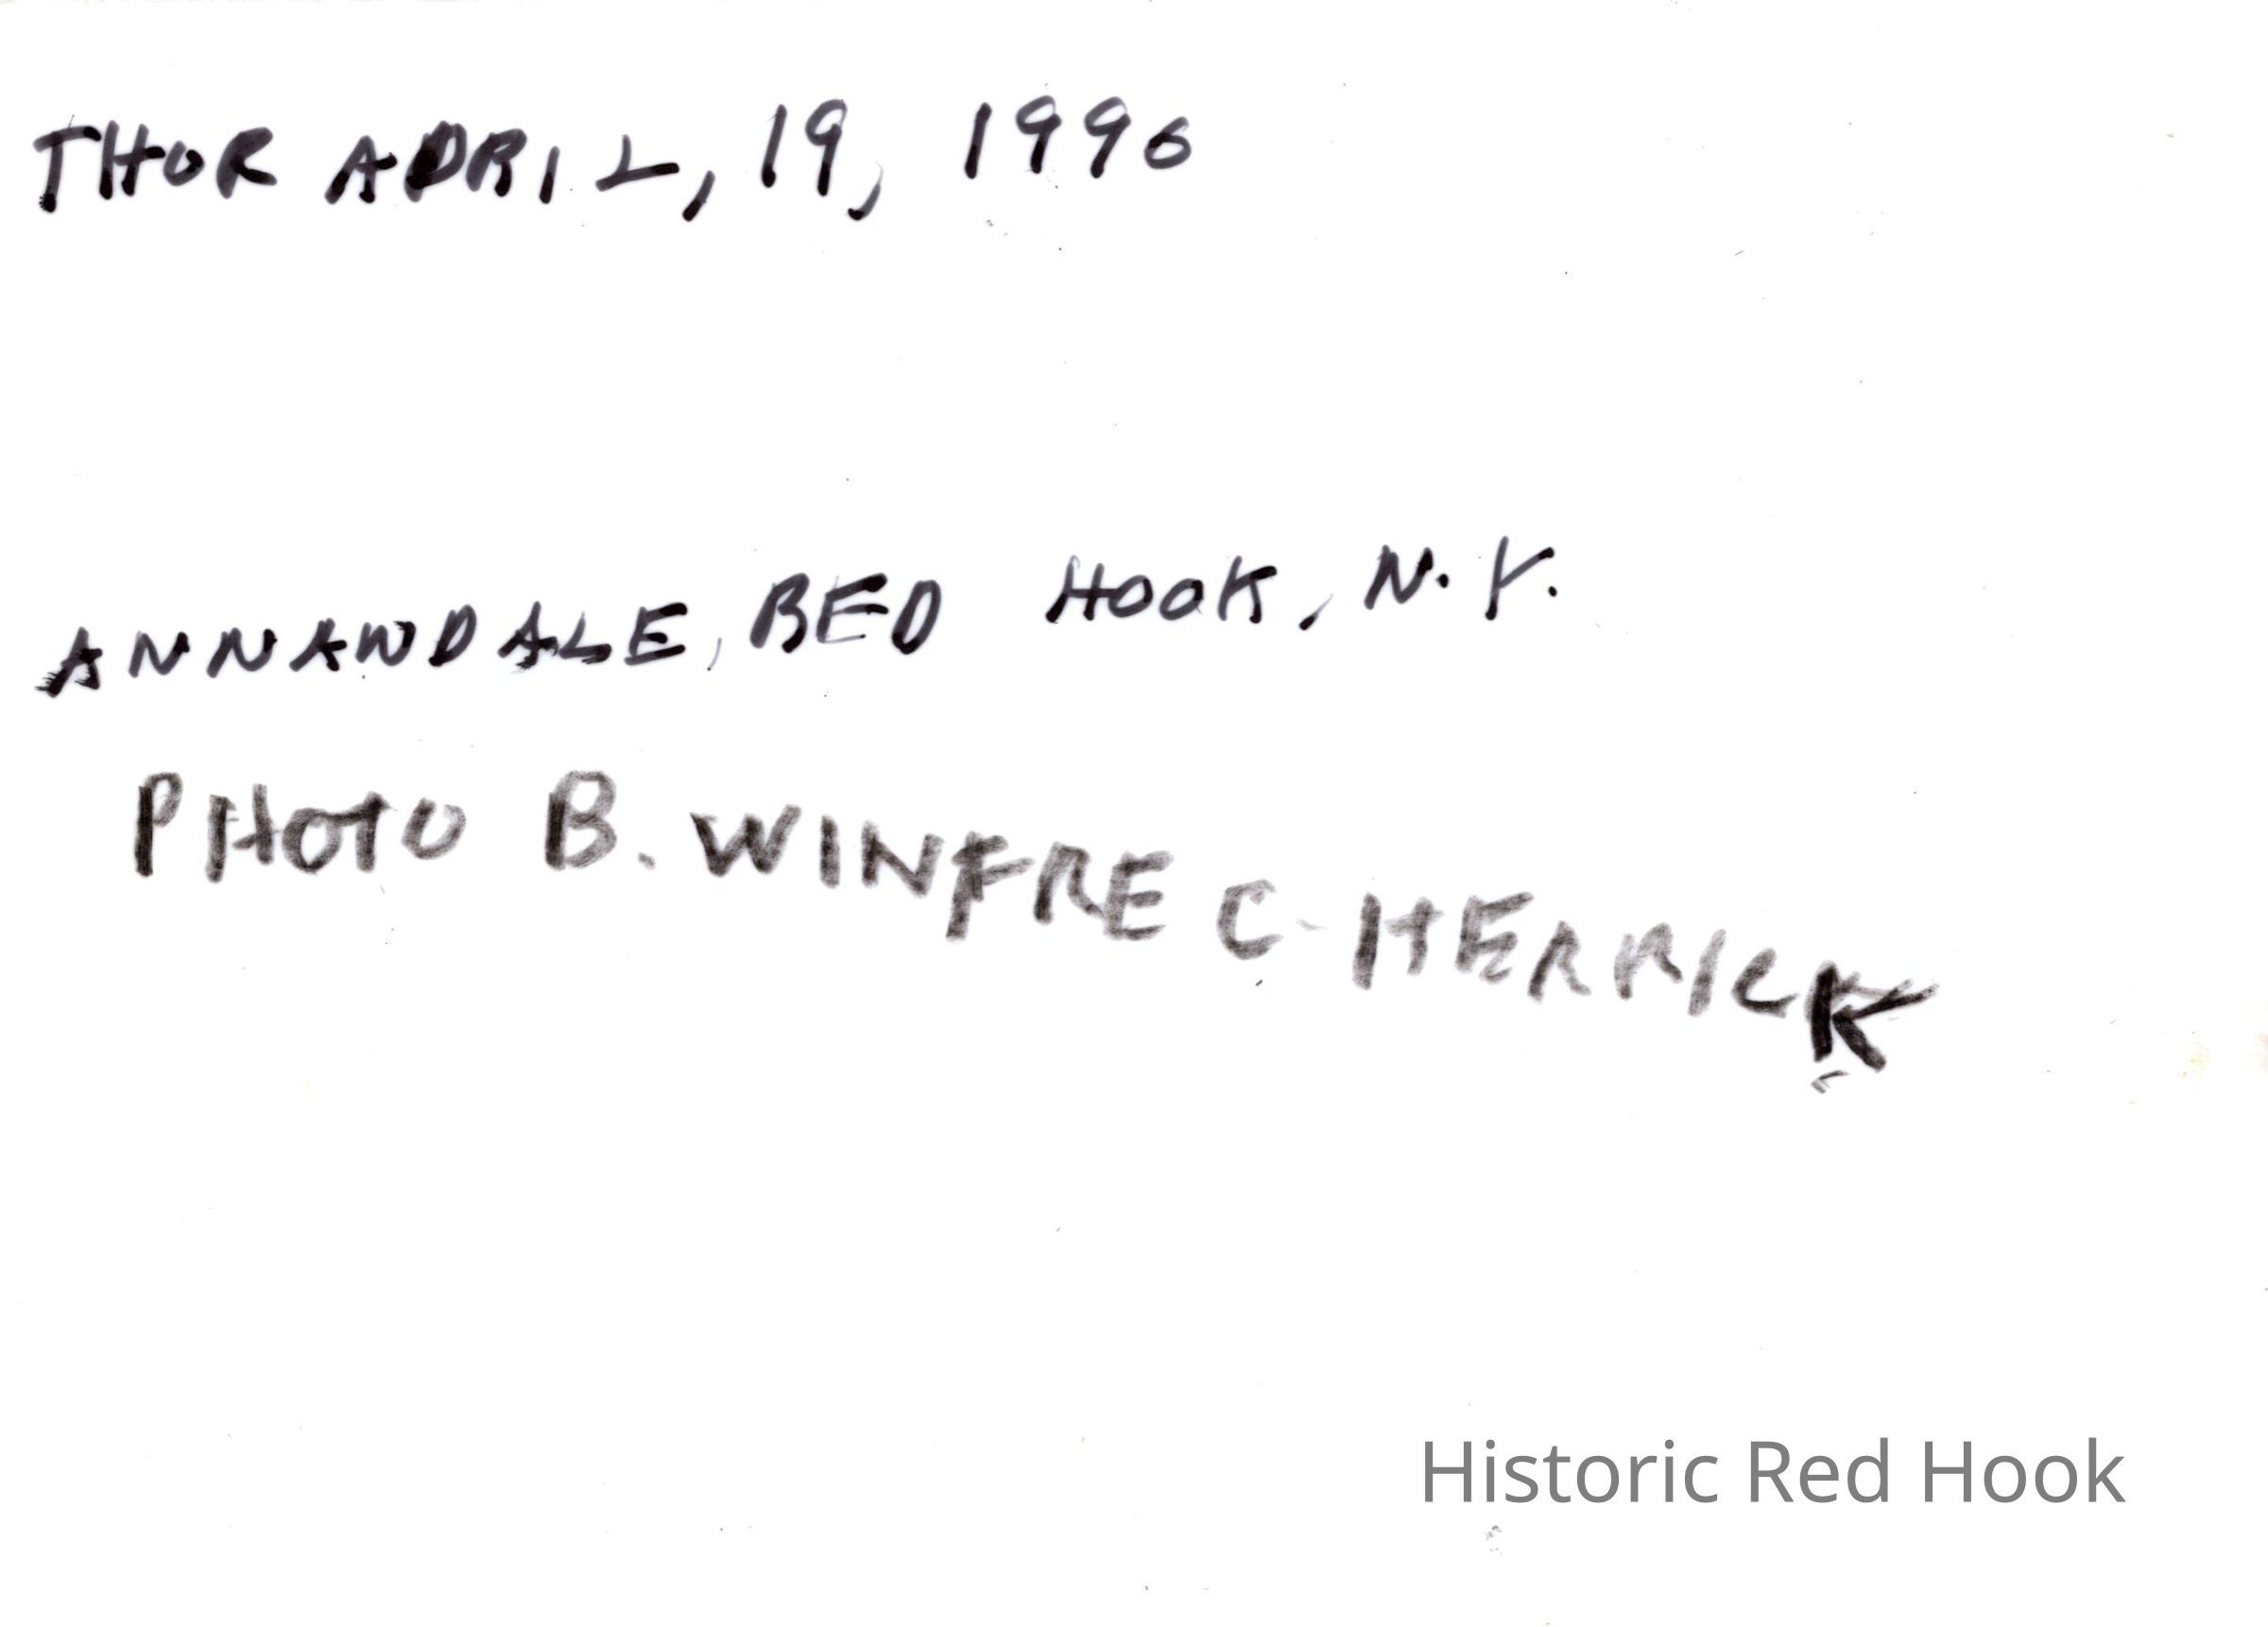 THOR APRIL, 19, 1996
ANNANDALE, RED HOOK, N.Y.
PHOTO B. WINFRE C. HERRICK
Historic Red Hook